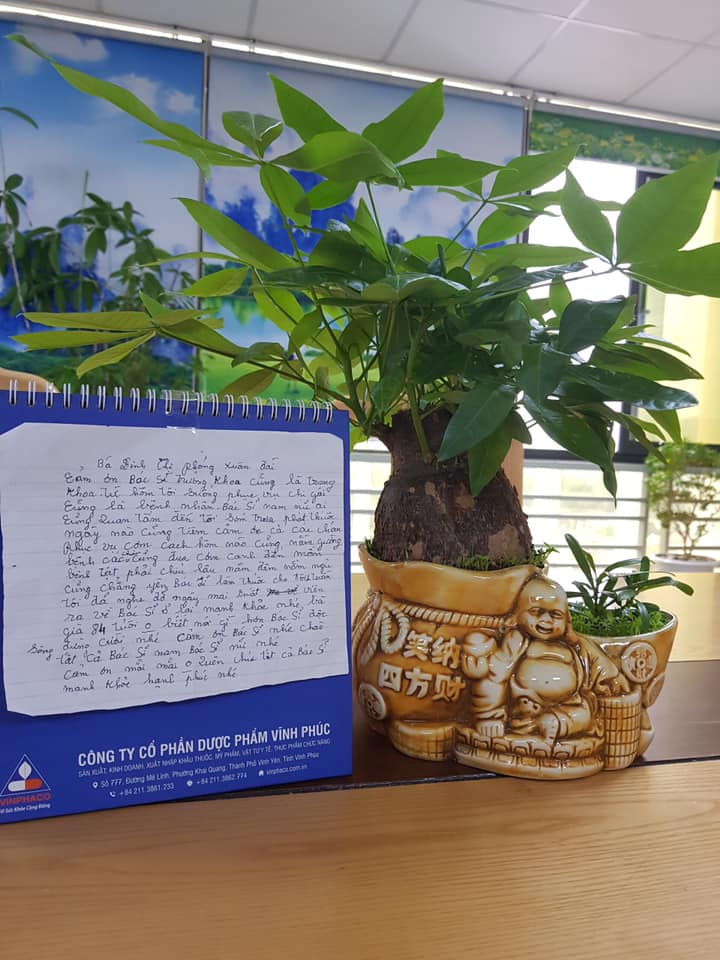 Bá Đinh Thị phống Xuân đài
Cảm ơn Bác Sĩ Trưởng Khoa cũng là trong
Khoa. Từ hôm tôi xuống phục vụ chị gái
cũng là bệnh nhân. Bác Sĩ nam nữ ai
cũng quan tâm đến tôi Sớm trưa phát thuốc
ngày nào cũng tiêm cảm ơ cả các cháu
phục vụ cơm cạch hôm nào cũng nằm giường
bệnh các cũng đưa cơm canh đến mồm
bệnh tật phải chịu lâu mền đến nằm ngủ
cũng chẳng yên Bác Sĩ làm thuốc cho tôi luôn
tôi đã nghi đỡ ngày mai xuất viện
ra về Bác Sĩ ở lại mạnh khỏe nhé, bà
già 84 tuổi o biết nói gì hơn Bác Sĩ đọc
đừng cười nhé Cảm ơn Bác Sĩ nhé chào
tất cả Bác Sĩ nam Bác Sĩ nữ nhé
Cảm ơn mãi mãi o quên chúc tất cả Bác Sĩ
mạnh khỏe hạnh phúc nhé
CÔNG TY CỔ PHẦN DƯỢC PHẨM VĨNH PHÚC
SẢN XUẤT, KINH DOANH, XUẤT NHẬP KHẨU THUỐC, MỸ PHẨM, VẬT TƯ Y TẾ, THỰC PHẨM CHỨC NĂNG
Số 777, Đường Mê Linh, Phường Khai Quang, Thành Phố Vĩnh Yên, Tỉnh Vĩnh Phúc
+84 211.3861.233 +84 211.3862.774 vinphaco.com.vn
VINPHACO
Vì Sức Khỏe Cộng Đồng
笑纳
四方财